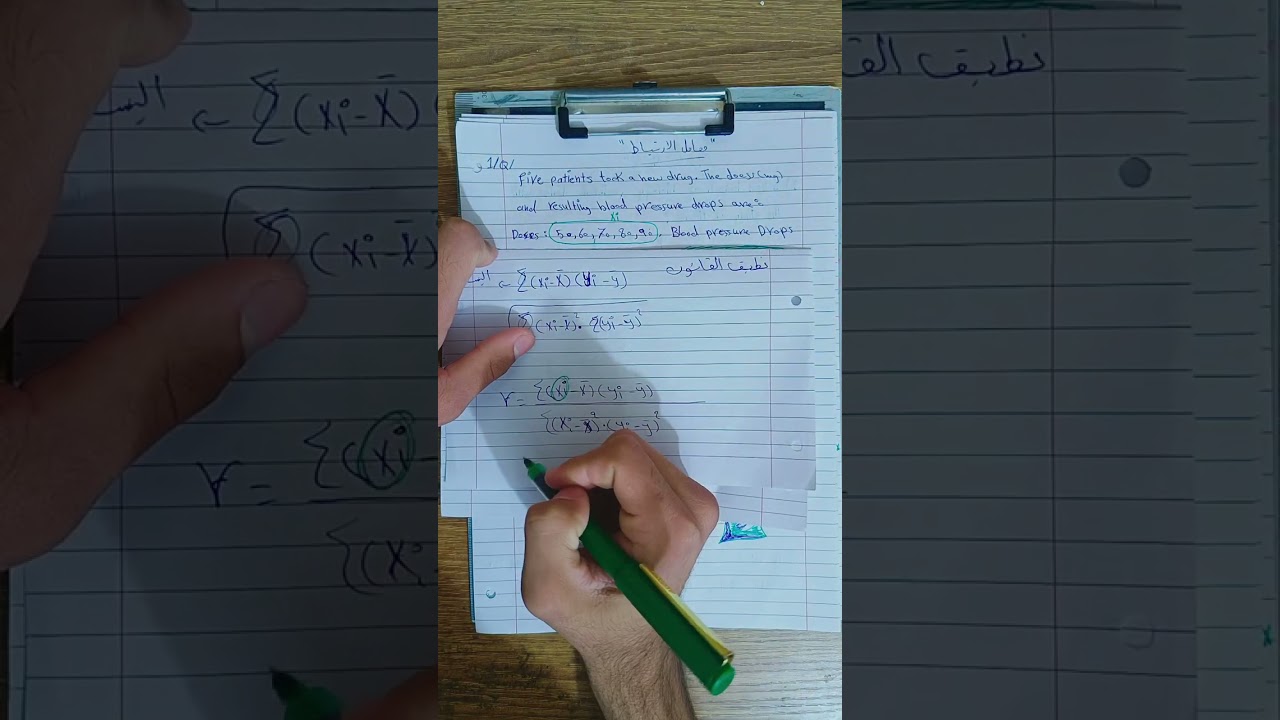 "معامل الارتباط"
1/Q/
Five patients took a new drug. The doses (mg)
and resulting blood pressure drops are:
xi
Doses: 50, 60, 70, 80, 90. Blood pressure Drops
تطبيق القانون
← Σ(xi-x̄)(yi-ȳ)
√Σ(xi-x̄)². Σ(yi-ȳ)²
r = Σ(xi-x̄)(yi-ȳ)
Σ(xi-x̄)².(yi-ȳ)²